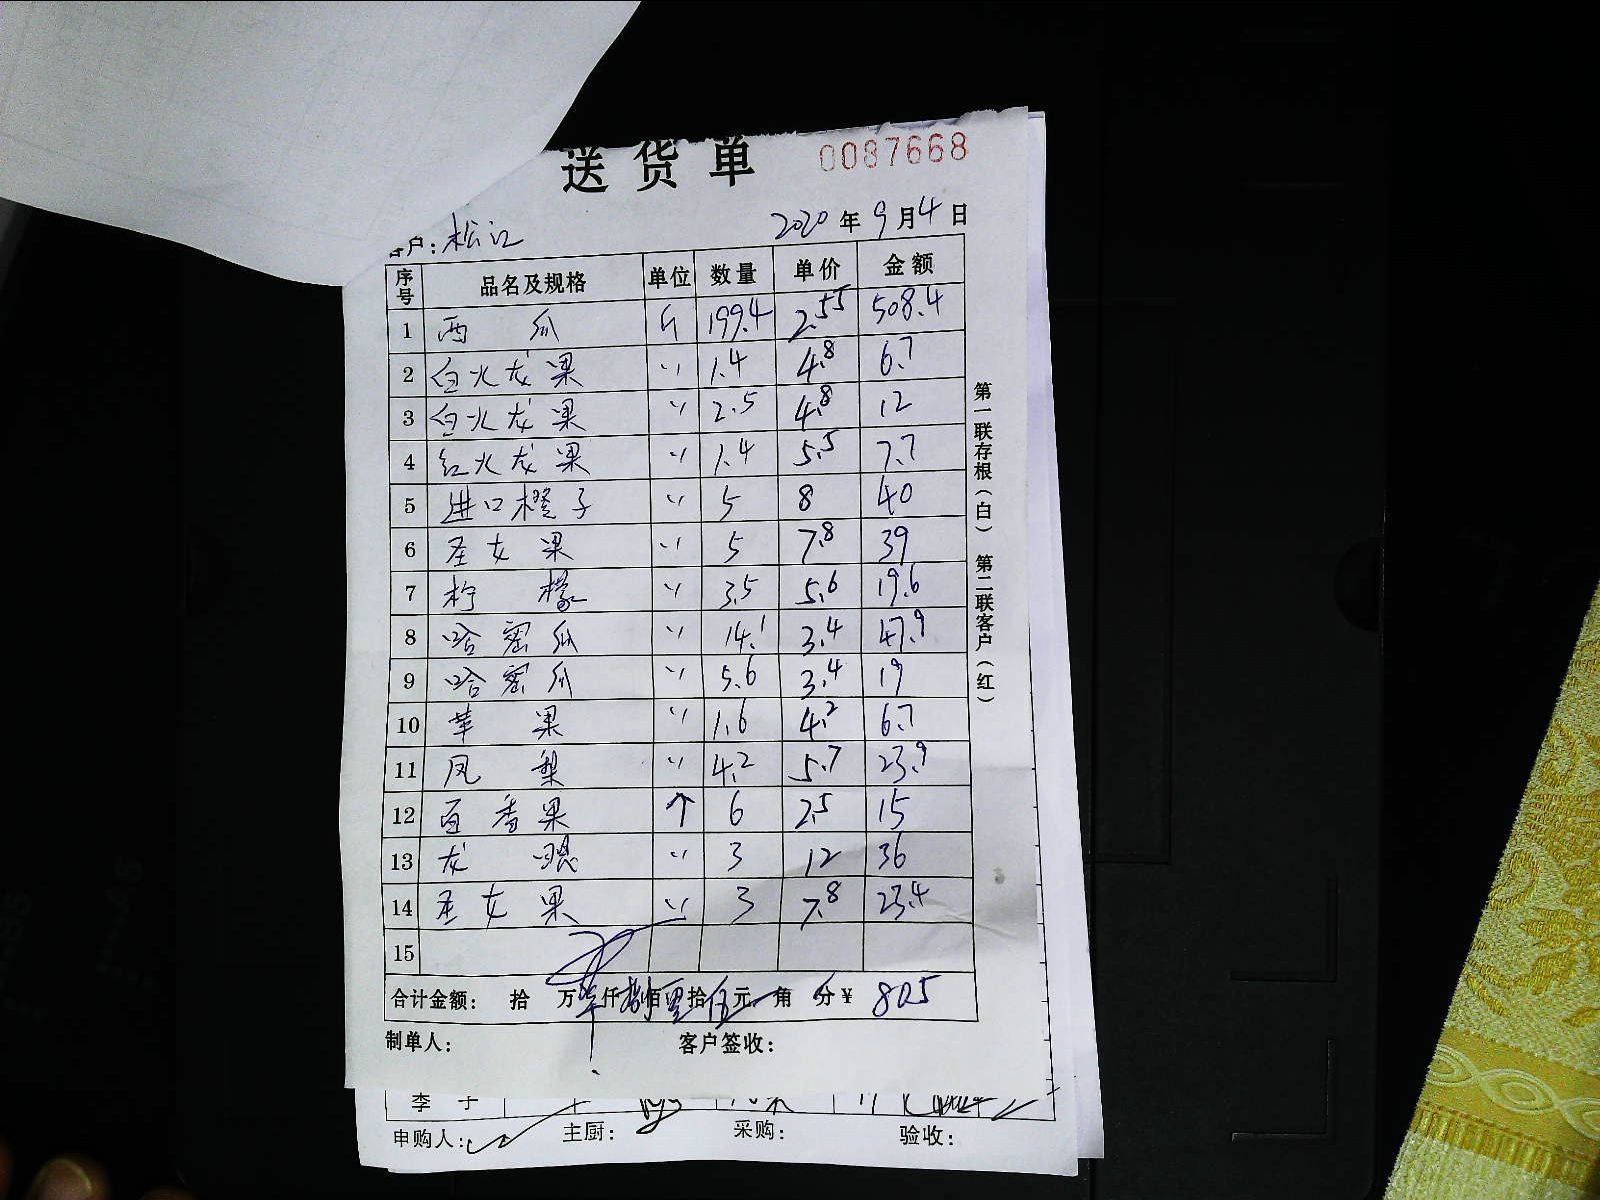 送货单 0087668
客户：松江 2020年9月4日
序号 品名及规格 单位 数量 单价 金额
1 西瓜 斤 199.4 2.55 508.4
2 白火龙果 〃 1.4 4.8 6.7
3 白火龙果 〃 2.5 4.8 12
4 红火龙果 〃 1.4 5.5 7.7
5 进口橙子 〃 5 8 40
6 圣女果 〃 5 7.8 39
7 柠檬 〃 3.5 5.6 19.6
8 哈密瓜 〃 14.1 3.4 47.9
9 哈密瓜 〃 5.6 3.4 19
10 苹果 〃 1.6 4.2 6.7
11 凤梨 〃 4.2 5.7 23.9
12 百香果 个 6 2.5 15
13 龙眼 〃 3 12 36
14 圣女果 〃 3 7.8 23.4
15
合计金额： 拾 万 仟 捌佰零拾伍元 角 分 ¥ 805
制单人： 客户签收：
第一联存根（白） 第二联客户（红）
李子
申购人： 主厨： 采购： 验收：